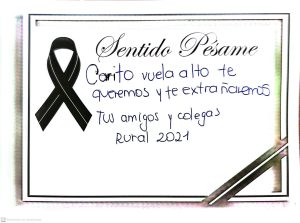 Sentido Pésame
Carito vuela alto te
queremos y te extrañaremos
Tus amigos y colegas
Rural 2021